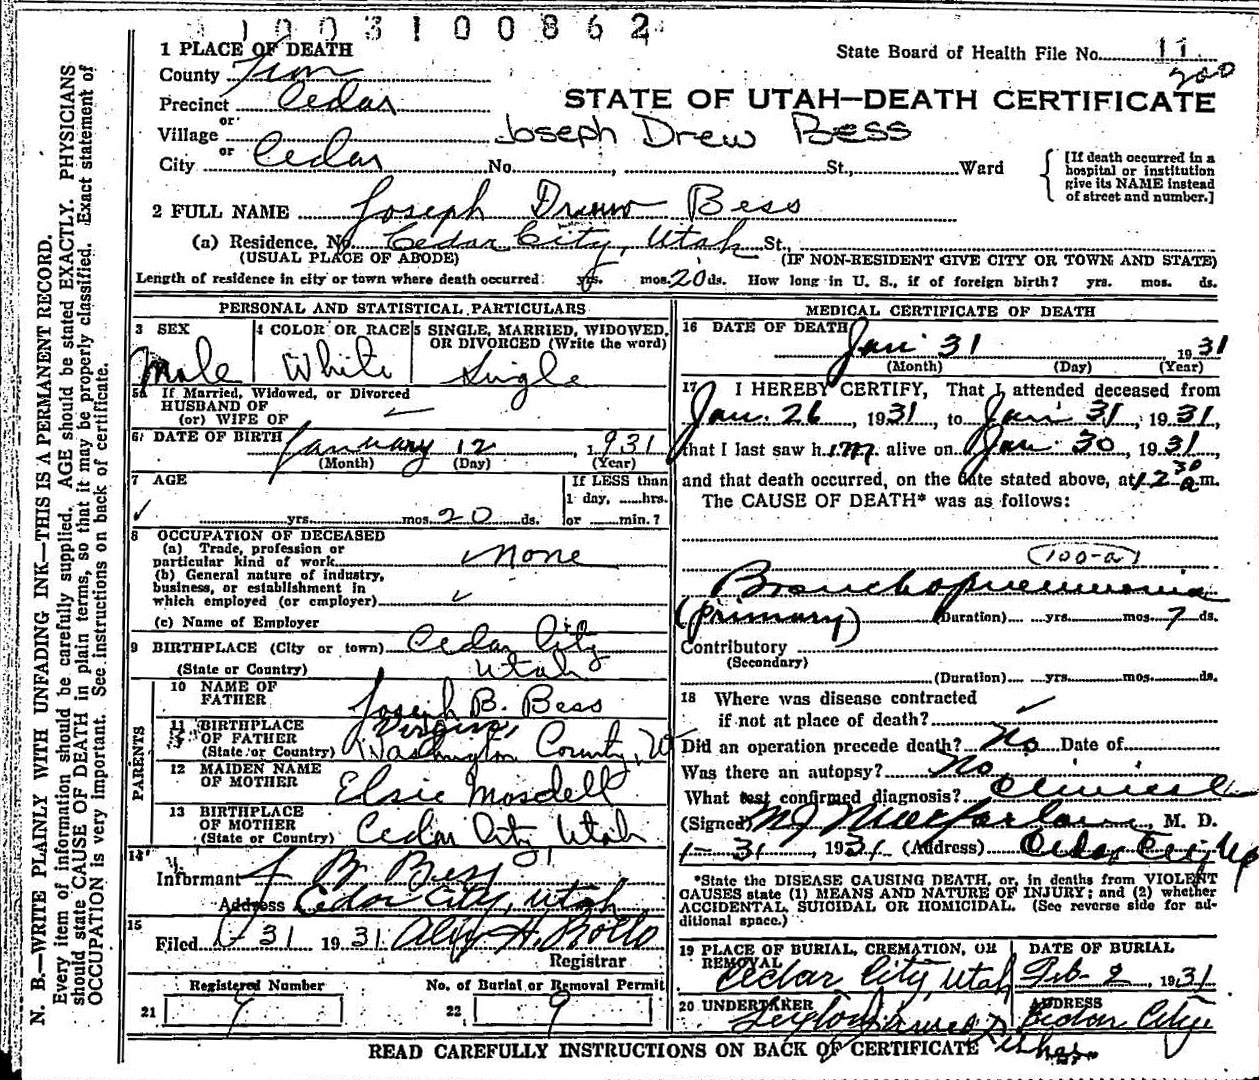 1003100862
1 PLACE OF DEATH
State Board of Health File No. 11
200
County Iron
Precinct Cedar
STATE OF UTAH—DEATH CERTIFICATE
or
Village
Joseph Drew Bess
or
City Cedar No. , St., Ward
[If death occurred in a
hospital or institution
give its NAME instead
of street and number.]
2 FULL NAME Joseph Drew Bess
(a) Residence, No. Cedar City, Utah St.,
(USUAL PLACE OF ABODE) (IF NON-RESIDENT GIVE CITY OR TOWN AND STATE)
Length of residence in city or town where death occurred yrs. mos. 20 ds. How long in U. S., if of foreign birth? yrs. mos. ds.
PERSONAL AND STATISTICAL PARTICULARS
3 SEX
Male
4 COLOR OR RACE
White
5 SINGLE, MARRIED, WIDOWED,
OR DIVORCED (Write the word)
Single
5a If Married, Widowed, or Divorced
HUSBAND OF
(or) WIFE OF
6 DATE OF BIRTH January 12, 1931
(Month) (Day) (Year)
7 AGE
yrs. mos. 20 ds.
If LESS than
1 day, hrs.
or min.?
8 OCCUPATION OF DECEASED
(a) Trade, profession or
particular kind of work none
(b) General nature of industry,
business, or establishment in
which employed (or employer)
(c) Name of Employer
9 BIRTHPLACE (City or town) Cedar City
(State or Country) Utah
PARENTS
10 NAME OF
FATHER Joseph B. Bess
11 BIRTHPLACE
OF FATHER Virgin,
(State or Country) Washington County, Ut
12 MAIDEN NAME
OF MOTHER Elsie Mosdell
13 BIRTHPLACE
OF MOTHER
(State or Country) Cedar City Utah
14
Informant J B. Bess
Address Cedar City, Utah
15
Filed 1-31 1931
Registrar
Registered Number
21 9
No. of Burial or Removal Permit
22 9
MEDICAL CERTIFICATE OF DEATH
16 DATE OF DEATH
Jan 31 1931
(Month) (Day) (Year)
17 I HEREBY CERTIFY, That I attended deceased from
Jan. 26, 1931, to Jan 31, 1931,
that I last saw him alive on Jan 30, 1931,
and that death occurred, on the date stated above, at 12 30 a.m.
The CAUSE OF DEATH* was as follows:
100-a
Bronchopneumonia
(primary) (Duration) yrs. mos. 7 ds.
Contributory
(Secondary)
(Duration) yrs. mos. ds.
18 Where was disease contracted
if not at place of death?
Did an operation precede death? No Date of
Was there an autopsy? No
What test confirmed diagnosis? Clinical
(Signed) M J Macfarlane, M. D.
1-31, 1931 (Address) Cedar City Ut
*State the DISEASE CAUSING DEATH, or, in deaths from VIOLENT
CAUSES state (1) MEANS AND NATURE OF INJURY; and (2) whether
ACCIDENTAL, SUICIDAL OR HOMICIDAL. (See reverse side for ad-
ditional space.)
19 PLACE OF BURIAL, CREMATION, OR
REMOVAL
Cedar City, Utah
DATE OF BURIAL
Feb-2, 1931
20 UNDERTAKER
ADDRESS
Cedar City
READ CAREFULLY INSTRUCTIONS ON BACK OF CERTIFICATE
N. B.—WRITE PLAINLY WITH UNFADING INK—THIS IS A PERMANENT RECORD.
Every item of information should be carefully supplied. AGE should be stated EXACTLY. PHYSICIANS
should state CAUSE OF DEATH in plain terms, so that it may be properly classified. Exact statement of
OCCUPATION is very important. See instructions on back of certificate.